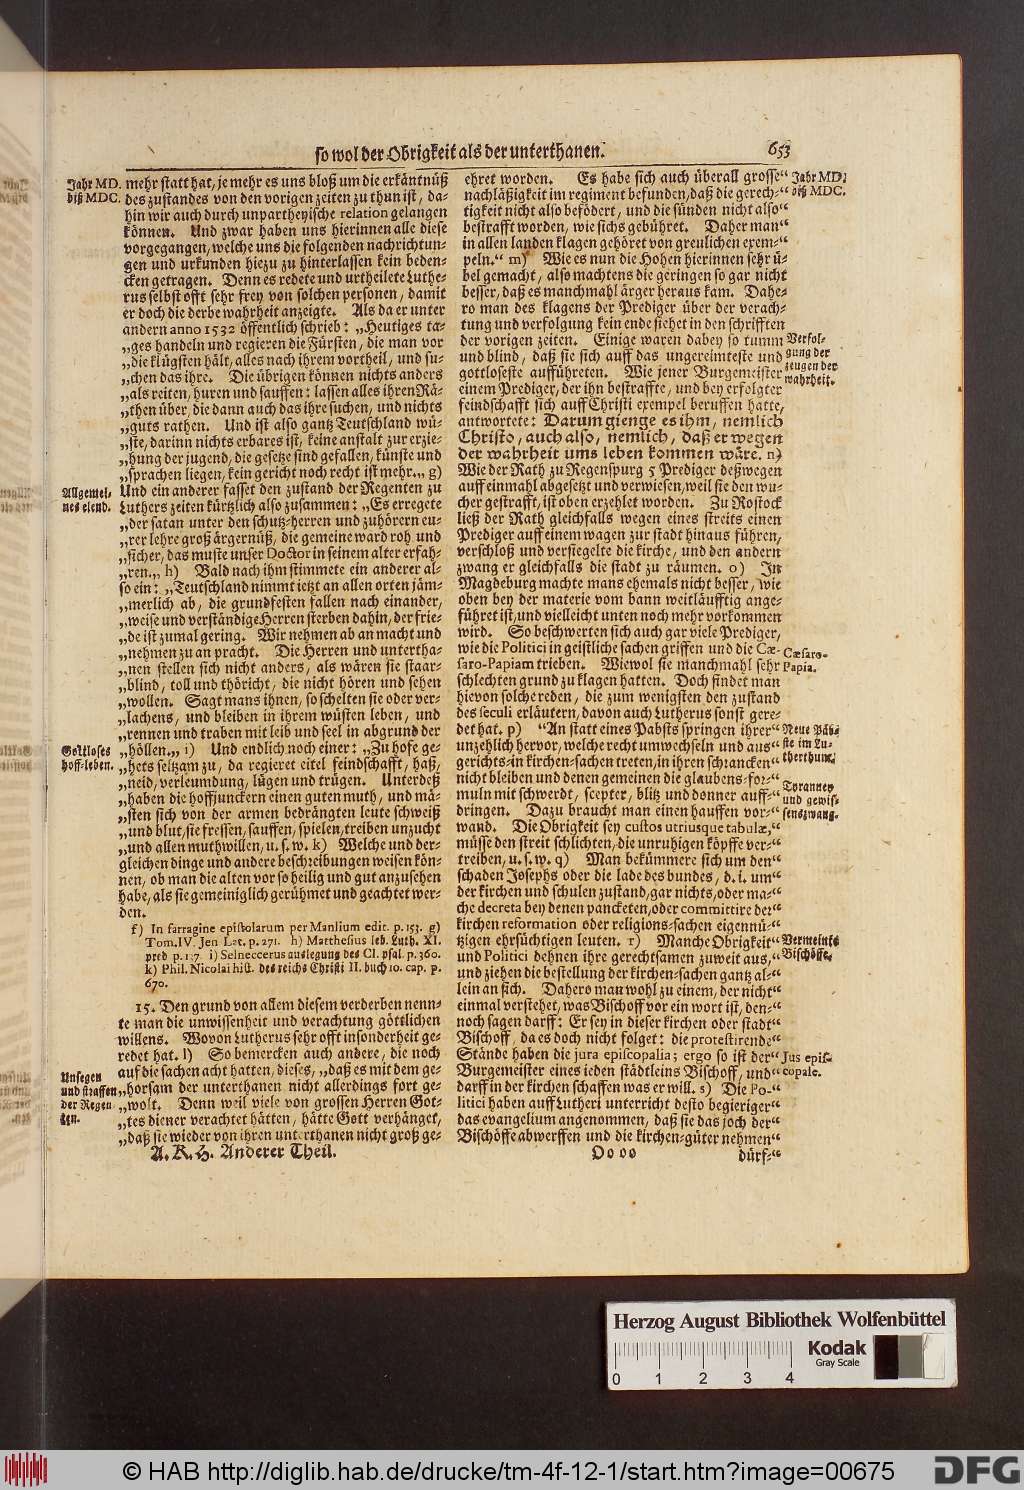 so wol der Obrigkeit als der unterthanen. 653
Jahr MD.
biß MDC.
mehr statt hat, je mehr es uns bloß um die erkäntnüß
des zustandes von den vorigen zeiten zu thun ist, da-
hin wir auch durch unpartheyische relation gelangen
können. Und zwar haben uns hierinnen alle diese
vorgegangen, welche uns die folgenden nachrichtun-
gen und urkunden hiezu zu hinterlassen kein beden-
cken getragen. Denn es redete und urtheilete Luthe-
rus selbst offt sehr frey von solchen personen, damit
er doch die derbe wahrheit anzeigte. Als da er unter
andern anno 1532 öffentlich schrieb: „Heutiges ta-
„ges handeln und regieren die Fürsten, die man vor
„die klügsten hält, alles nach ihrem vortheil, und su-
„chen das ihre. Die übrigen können nichts anders
„als reiten, huren und sauffen: lassen alles ihren Rä-
„then über, die dann auch das ihre suchen, und nichts
„guts rathen. Und ist also gantz Teutschland wü-
„ste, darinn nichts erbares ist, keine anstalt zur erzie-
„hung der jugend, die gesetze sind gefallen, künste und
„sprachen liegen, kein gericht noch recht ist mehr.„ g)
Allgemei-
nes elend.
Und ein anderer fasset den zustand der Regenten zu
Luthers zeiten kürtzlich also zusammen: „Es erregete
„der satan unter den schutz-herren und zuhörern eu-
„rer lehre groß ärgernüß, die gemeine ward roh und
„sicher, das muste unser Doctor in seinem alter erfah-
„ren.„ h) Bald nach ihm stimmete ein anderer al-
so ein: „Teutschland nimmt ietzt an allen orten jäm-
„merlich ab, die grundfesten fallen nach einander,
„weise und verständige Herren sterben dahin, der frie-
„de ist zumal gering. Wir nehmen ab an macht und
„nehmen zu an pracht. Die Herren und untertha-
„nen stellen sich nicht anders, als wären sie staar-
„blind, toll und thöricht, die nicht hören und sehen
„wollen. Sagt mans ihnen, so schelten sie oder ver-
„lachens, und bleiben in ihrem wüsten leben, und
„rennen und traben mit leib und seel in abgrund der
Gottloses
hoff-leben.
„höllen.„ i) Und endlich noch einer: „Zu hofe ge-
„hets seltzam zu, da regieret eitel feindschafft, haß,
„neid, verleumdung, lügen und trügen. Unterdeß
„haben die hoffjunckern einen guten muth, und mä-
„sten sich von der armen bedrängten leute schweiß
„und blut, sie fressen, sauffen, spielen, treiben unzucht
„und allen muthwillen, u. s. w. k) Welche und der-
gleichen dinge und andere beschreibungen weisen kön-
nen, ob man die alten vor so heilig und gut anzusehen
habe, als sie gemeiniglich gerühmet und geachtet wer-
den.
f) In farragine epistolarum per Manlium edit. p. 153. g)
Tom. IV. Jen Lat. p. 271. h) Matthesius leb. Luth. XI.
pred p. 137. i) Selneccerus auslegung des CI. psal. p. 360.
k) Phil. Nicolai hist. des reichs Christi II. buch 10. cap. p.
670.
15. Den grund von allem diesem verderben nenn-
te man die unwissenheit und verachtung göttlichen
willens. Wovon Lutherus sehr offt insonderheit ge-
redet hat. l) So bemercken auch andere, die noch
auf die sachen acht hatten, dieses, „daß es mit dem ge-
Unsegen
und straffen
der Regen
ten.
„horsam der unterthanen nicht allerdings fort ge-
„wolt. Denn weil viele von grossen Herren Got-
„tes diener verachtet hätten, hätte Gott verhänget,
„daß sie wieder von ihren unterthanen nicht groß ge-
A. K. H. Anderer Theil.
ehret worden. Es habe sich auch überall grosse“
Jahr MD.
biß MDC.
nachläßigkeit im regiment befunden, daß die gerech-“
tigkeit nicht also befödert, und die sünden nicht also“
bestrafft worden, wie sichs gebühret. Daher man“
in allen landen klagen gehöret von greulichen exem-“
peln.“ m) Wie es nun die Hohen hierinnen sehr ü-
bel gemacht, also machtens die geringen so gar nicht
besser, daß es manchmahl ärger heraus kam. Dahe-
ro man des klagens der Prediger über der verach-
tung und verfolgung kein ende siehet in den schrifften
der vorigen zeiten. Einige waren dabey so tumm
Verfol-
gung der
zeugen der
wahrheit.
und blind, daß sie sich auff das ungereimteste und
gottloseste aufführeten. Wie jener Burgemeister
einem Prediger, der ihn bestraffte, und bey erfolgter
feindschafft sich auff Christi exempel beruffen hatte,
antwortete: Darum gienge es ihm, nemlich
Christo, auch also, nemlich, daß er wegen
der wahrheit ums leben kommen wäre. n)
Wie der Rath zu Regenspurg 5 Prediger deßwegen
auff einmahl abgesetzt und verwiesen, weil sie den wu-
cher gestrafft, ist oben erzehlet worden. Zu Rostock
ließ der Rath gleichfalls wegen eines streits einen
Prediger auff einem wagen zur stadt hinaus führen,
verschloß und versiegelte die kirche, und den andern
zwang er gleichfalls die stadt zu räumen. o) In
Magdeburg machte mans ehemals nicht besser, wie
oben bey der materie vom bann weitläufftig ange-
führet ist, und vielleicht unten noch mehr vorkommen
wird. So beschwerten sich auch gar viele Prediger,
wie die Politici in geistliche sachen griffen und die Cæ-
Cæsaro-
Papia.
saro-Papiam trieben. Wiewol sie manchmahl sehr
schlechten grund zu klagen hatten. Doch findet man
hievon solche reden, die zum wenigsten den zustand
des seculi erläutern, davon auch Lutherus sonst gere-
det hat. p) “An statt eines Pabsts springen ihrer“
Neue Päb-
ste im Lu-
therthum.
unzehlich hervor, welche recht umwechseln und aus“
gerichts-in kirchen-sachen treten, in ihren schrancken“
nicht bleiben und denen gemeinen die glaubens-for-“
Tyranney
und gewis-
senszwang.
muln mit schwerdt, scepter, blitz und donner auff-“
dringen. Dazu braucht man einen hauffen vor-“
wand. Die Obrigkeit sey custos utriusque tabulæ,“
müsse den streit schlichten, die unruhigen köpffe ver-“
treiben, u. s. w. q) Man bekümmere sich um den“
schaden Josephs oder die lade des bundes, d. i. um“
der kirchen und schulen zustand, gar nichts, oder ma-“
che decreta bey denen pancketen, oder committire der“
kirchen reformation oder religions-sachen eigennü-“
tzigen ehrsüchtigen leuten. r) Manche Obrigkeit“
Vermeinte
Bischöffe.
und Politici dehnen ihre gerechtsamen zuweit aus,“
und ziehen die bestellung der kirchen-sachen gantz al-“
lein an sich. Dahero man wohl zu einem, der nicht“
einmal verstehet, was Bischoff vor ein wort ist, den-“
noch sagen darff: Er sey in dieser kirchen oder stadt“
Bischoff, da es doch nicht folget: die protestirende“
Stände haben die jura episcopalia; ergo so ist der“
Jus epis-
copale.
Burgemeister eines ieden städtleins Bischoff, und“
darff in der kirchen schaffen was er will. s) Die Po-“
litici haben auff Lutheri unterricht desto begieriger“
das evangelium angenommen, daß sie das joch der“
Bischöffe abwerffen und die kirchen-güter nehmen“
Oo oo dürf-“
Herzog August Bibliothek Wolfenbüttel
Kodak
Gray Scale
0 1 2 3 4
© HAB http://diglib.hab.de/drucke/tm-4f-12-1/start.htm?image=00675
DFG